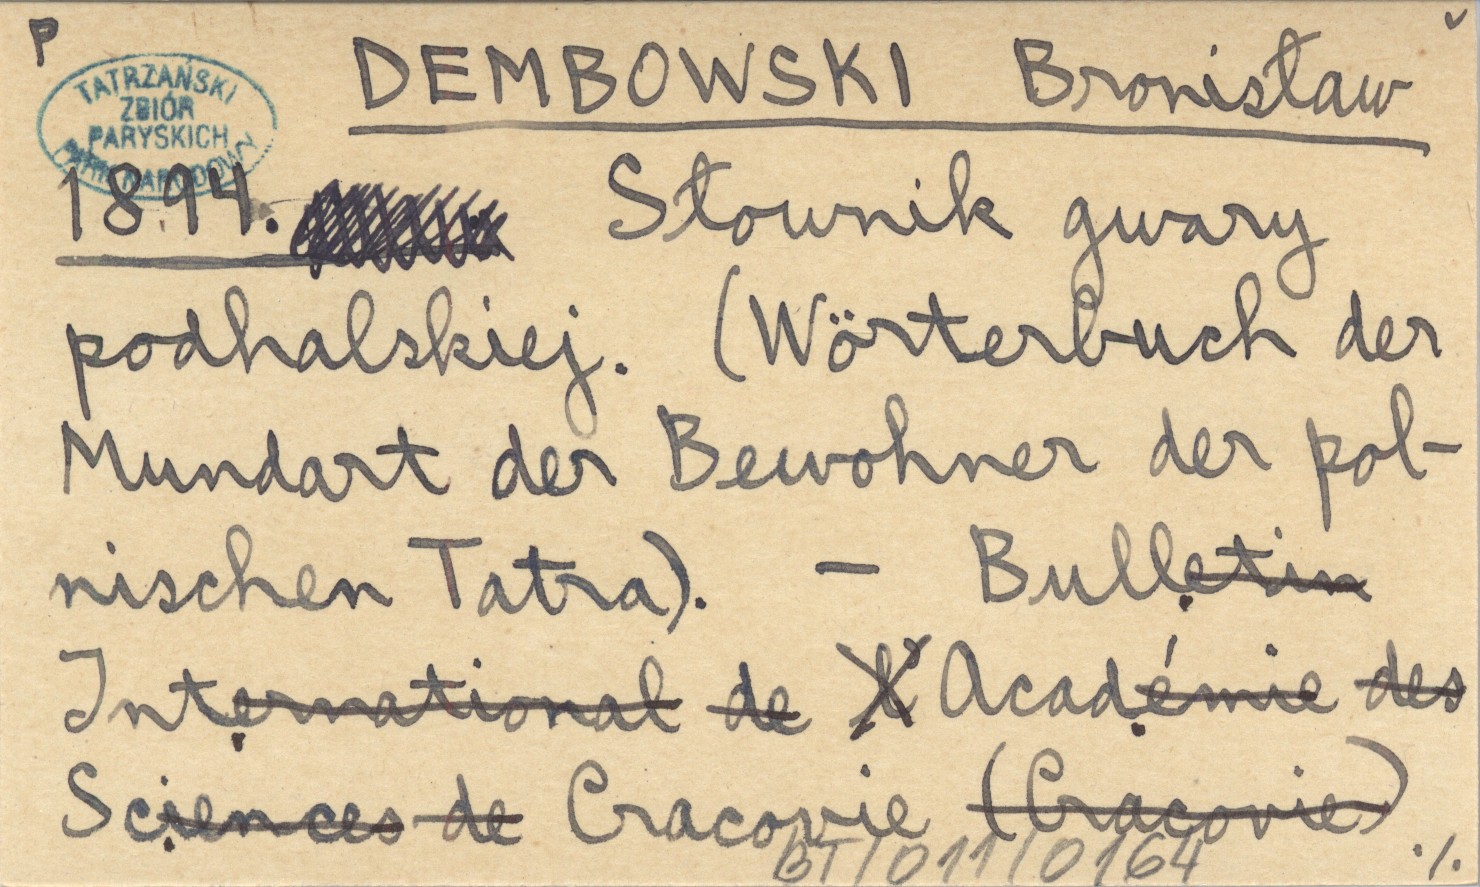 P
v
TATRZAŃSKI
ZBIÓR
PARYSKICH
DEMBOWSKI Bronisław
1894. Słownik gwary
podhalskiej. (Wörterbuch der
Mundart der Bewohner der pol-
nischen Tatra). — Bulletin
International de l' Académie des
Sciences de Cracovie (Cracovie)
BT/011/0164
./.